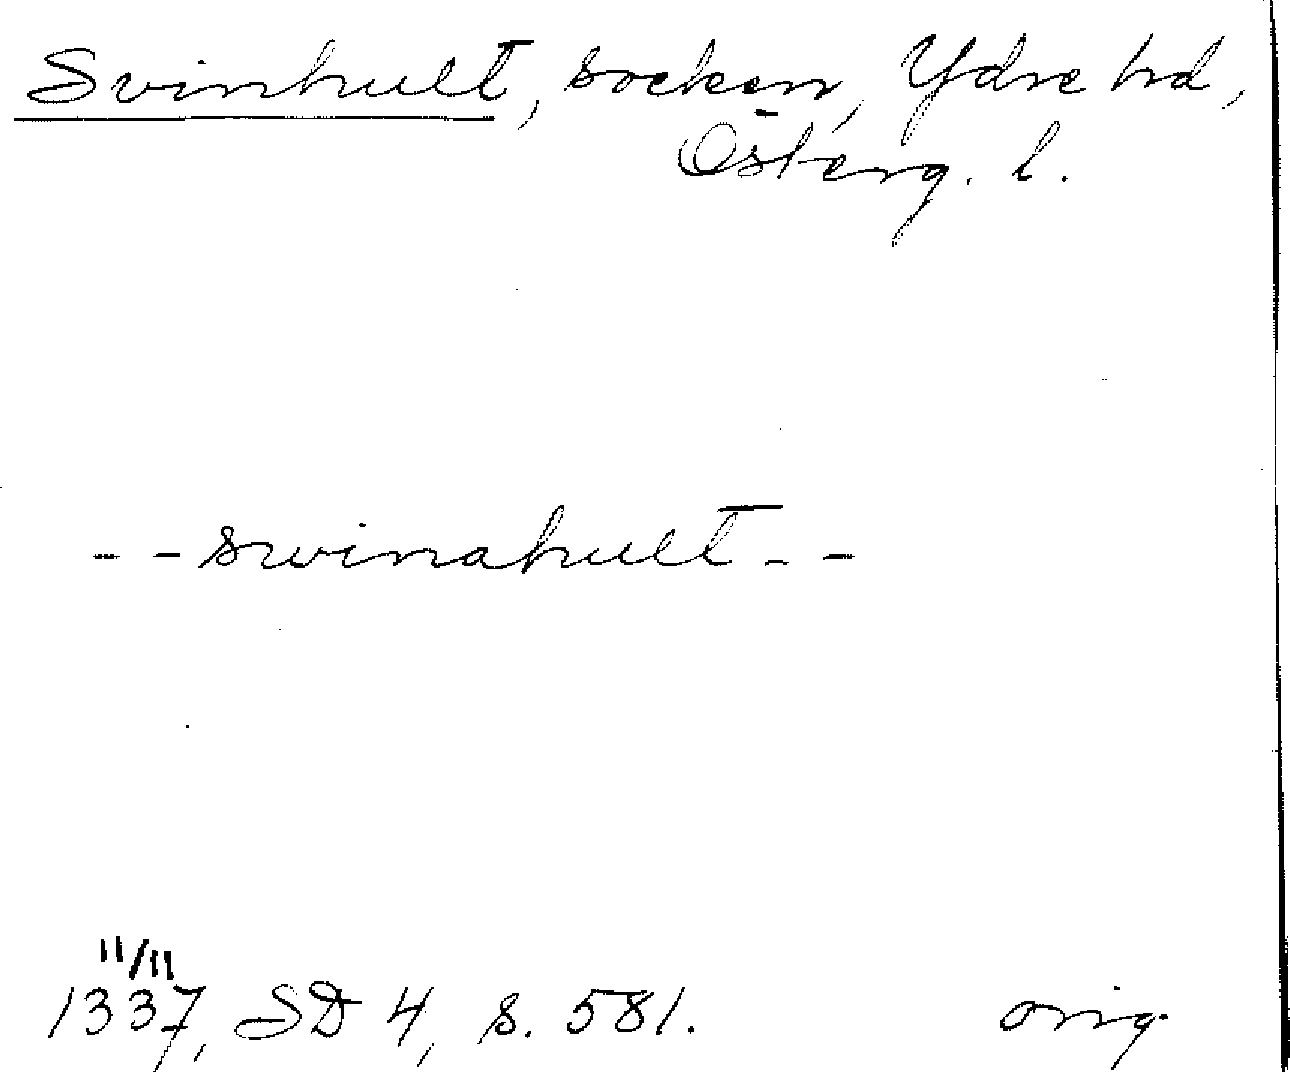 Svinhult, socken, Ydre hd,
Österg. l.
- - swinahult - -
11/11
1337, SD 4, s. 581. orig.